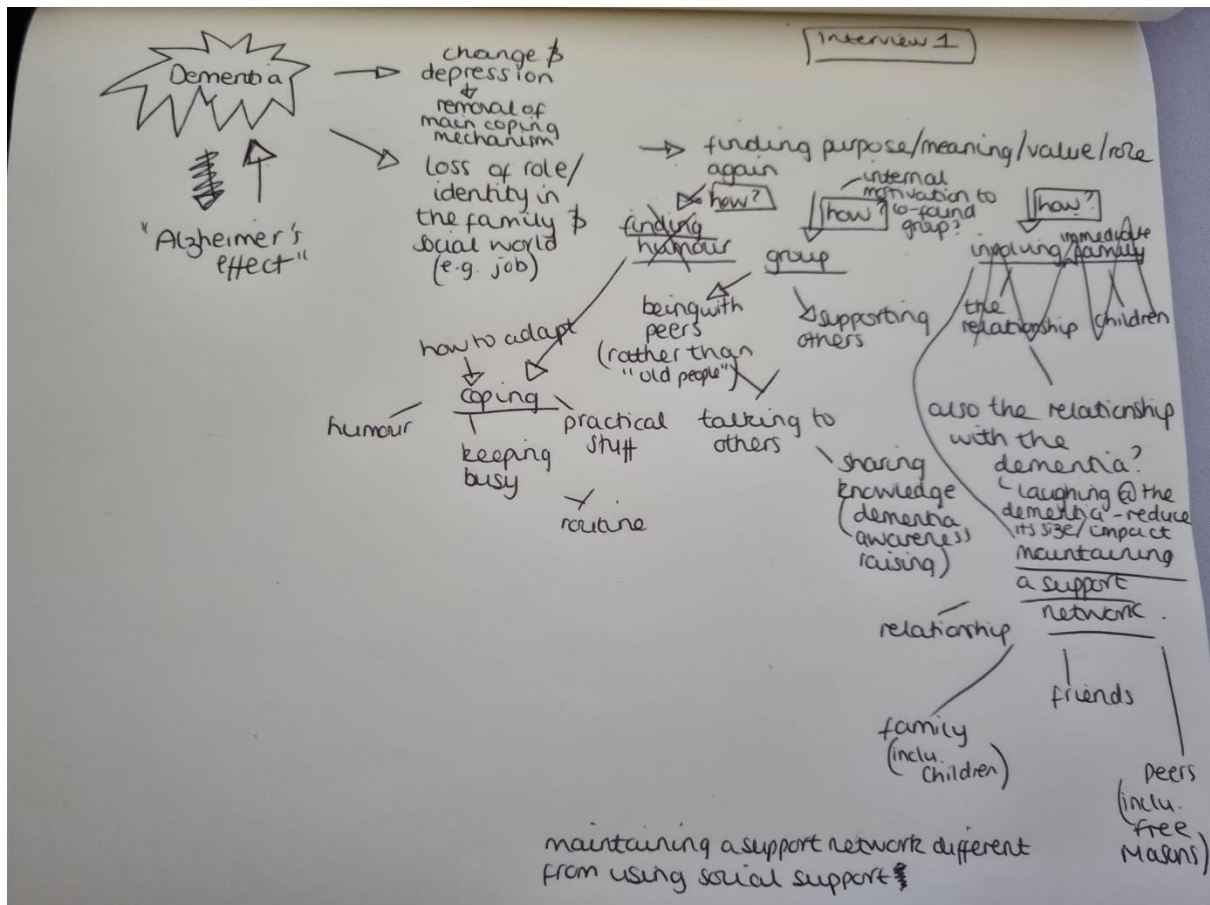 Interview 1
Dementia
"Alzheimer's
effect"
change &
depression
removal of
main coping
mechanism
loss of role/
identity in
the family &
social world
(e.g. job)
finding purpose/meaning/value/role
again
how?
finding
humour
internal
motivation to
co-found
group?
how?
group
how?
involving immediate
family
the
relationship
children
being with
peers
(rather than
"old people")
supporting
others
how to adapt
coping
humour
keeping
busy
practical
stuff
routine
talking to
others
sharing
knowledge
(dementia
awareness
raising)
also the relationship
with the
dementia?
laughing @ the
dementia - reduce
its size/impact
maintaining
a support
network.
relationship
family
(inclu.
children)
friends
peers
(inclu.
free
masons)
maintaining a support network different
from using social support